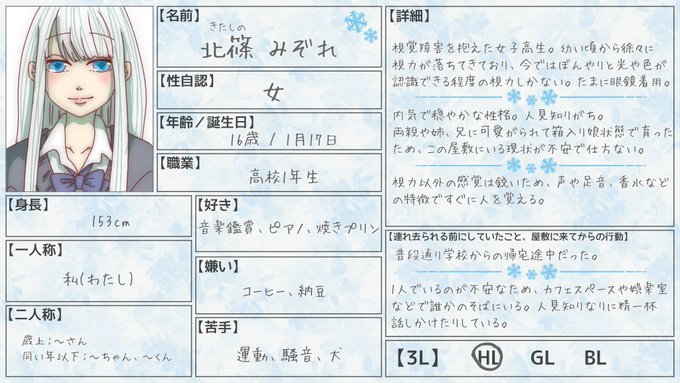 【名前】
きたしの
北篠 みぞれ
【性自認】
女
【年齢／誕生日】
16歳 / 1月17日
【職業】
高校1年生
【身長】
153cm
【一人称】
私(わたし)
【二人称】
歳上;〜さん
同い年以下;〜ちゃん、〜くん
【好き】
音楽鑑賞、ピアノ、焼きプリン
【嫌い】
コーヒー、納豆
【苦手】
運動、騒音、犬
【詳細】
視覚障害を抱えた女子高生。幼い頃から徐々に
視力が落ちてきており、今ではぼんやりと光や色が
認識できる程度の視力しかない。たまに眼鏡着用。
内気で穏やかな性格。人見知りがち。
両親や姉、兄に可愛がられて箱入り娘状態で育った
ため、この屋敷にいる現状が不安で仕方ない。
視力以外の感覚は鋭いため、声や足音、香水など
の特徴ですぐに人を覚える。
【連れ去られる前にしていたこと、屋敷に来てからの行動】
普段通り学校からの帰宅途中だった。
1人でいるのが不安なため、カフェスペースや娯楽室
などで誰かのそばにいる。人見知りなりに精一杯
話しかけたりしている。
【3L】 HL GL BL